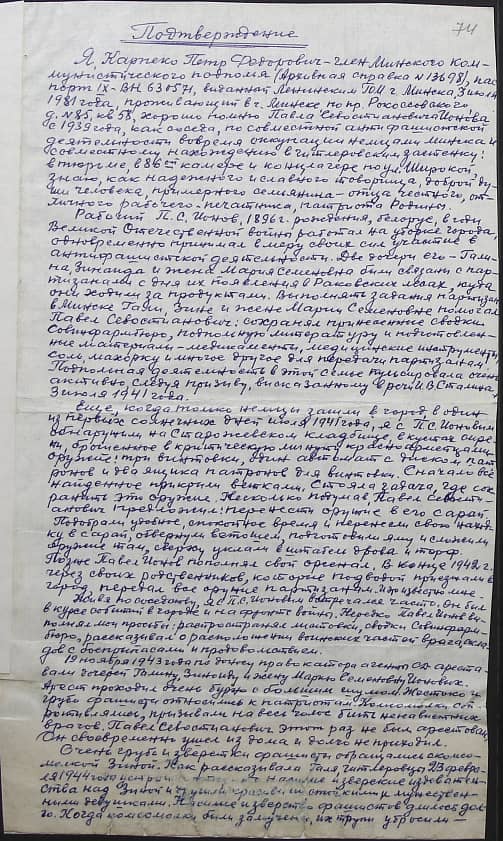 74
Подтверждение
Я, Карпеко Петр Федорович – член Минского ком-
мунистического подполья (Архивная справка №13698), пас-
порт IX-ВН 631571, выданной Ленинским РОМ г. Минска, 3 июля
1981 года, проживающий в г. Минске по пр. Рокоссовского,
д. №85, кв 53, хорошо помню Павла Севостиановича Ионова
с 1939 года, как соседа, по совместной антифашистской
деятельности вовремя оккупации немцами Минска и
совместному нахождению в гитлеровских застенку:
в тюрьме, в 86ой камере и концлагере по ул. Широкой,
знаю, как надежного и славного товарища, доброй ду-
ши человека, примерного семьянина – отца честного, от-
личного рабочего-печатника, патриота Родины.
Рабочий П.С. Ионов, 1896 г. рождения, белорус, в годы
Великой Отечественной войны работал на уборке города,
одновременно принимал в меру своих сил участие в
антифашистской деятельности. Две дочери его – Гали-
на, Зинаида и жена Мария Семеновна были связаны с пар-
тизанами с дня их появления в Раковских лесах, куда
они ходили за продуктами. Выполнять задания партизан
в Минске Гали, Зине и жене Марии Семеновне помогал
Павел Севостианович: сохранял принесенные сводки
Совинформбюро, подпольную литературу и подготовлен-
ные материалы – медикаменты, медицинские инструменты,
соль, махорку и многое другое для передачи партизанам.
Подпольная деятельность в этой семье пульсировала очень
активно, следуя призыву, высказанному в речи И.В. Сталина
3 июля 1941 года.
Еще, когда только немцы зашли в город в один
из первых солнечных дней июля 1941 года, я с П.С. Ионовым
обнаружили на Сторожевском кладбище, в кустах сире-
ни, брошенное в критическую минуту красноармейцами
оружие: три винтовки, один автомат с диском пат-
ронов и два ящика патронов для винтовки. Сначала всё
найденное прикрыли ветками. Стояла задача, где сох-
ранить это оружие. Несколько подумав Павел Севости-
анович предложил: перенести оружие в его сарай.
Подобрали удобное, спокойное время и перенесли свою наход-
ку в сарай, обвернули ветошью, подготовили яму и сложили
оружие там, сверху уклали в штабель дрова и торф.
Позже Павел Ионов пополнял свой арсенал. В конце 1942 г.
через своих родственников, которые подводой приезжали в
город, передал все оружие партизанам. Это известно мне.
Живя по соседству, я с П.С. Ионовым встречался часто. Он был
в курсе событий в городе и на фронте войны. Нередко Павел Ионов вы-
полнял мои просьбы: распространял листовки, сводки Совинформ-
бюро, рассказывал о расположении воинских частей врага, скла-
дов с боеприпасами и продовольствием.
19 ноября 1943 года по доносу провокатора агенты СД аресто-
вали дочерей Галину, Зинаиду и жену Марию Семеновну Ионовых.
Арест проходил очень бурно с большим шумом. Жестоко и
грубо фашисты относились к патриоткам. Комсомолки соп-
ротивлялись, призывали на весь голос бить ненавистных
врагов. Павел Севостианович этот раз не был арестован.
Он своевременно ушел из дома и долго не приходил.
Очень грубо и зверски фашисты обращались с комсо-
молкой Зиной. Как рассказывала Галя, гитлеровцы 23 февра-
ля 1944 года насилие и зверские издеватель-
ства над Зиной и другими красивыми стойкими и мужествен-
ными девушками. Насилие и зверство фашистов длилось дол-
го. Когда комсомолки были замучены, их трупы убросили –